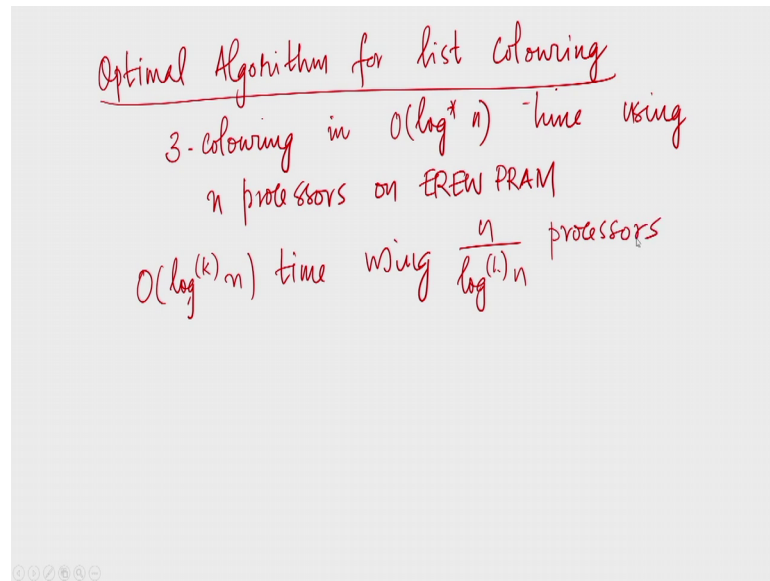 Optimal Algorithm for list Colouring
3-colouring in O(log* n) time using
n processors on EREW PRAM
O(log^(k) n) time using n/log^(k) n processors